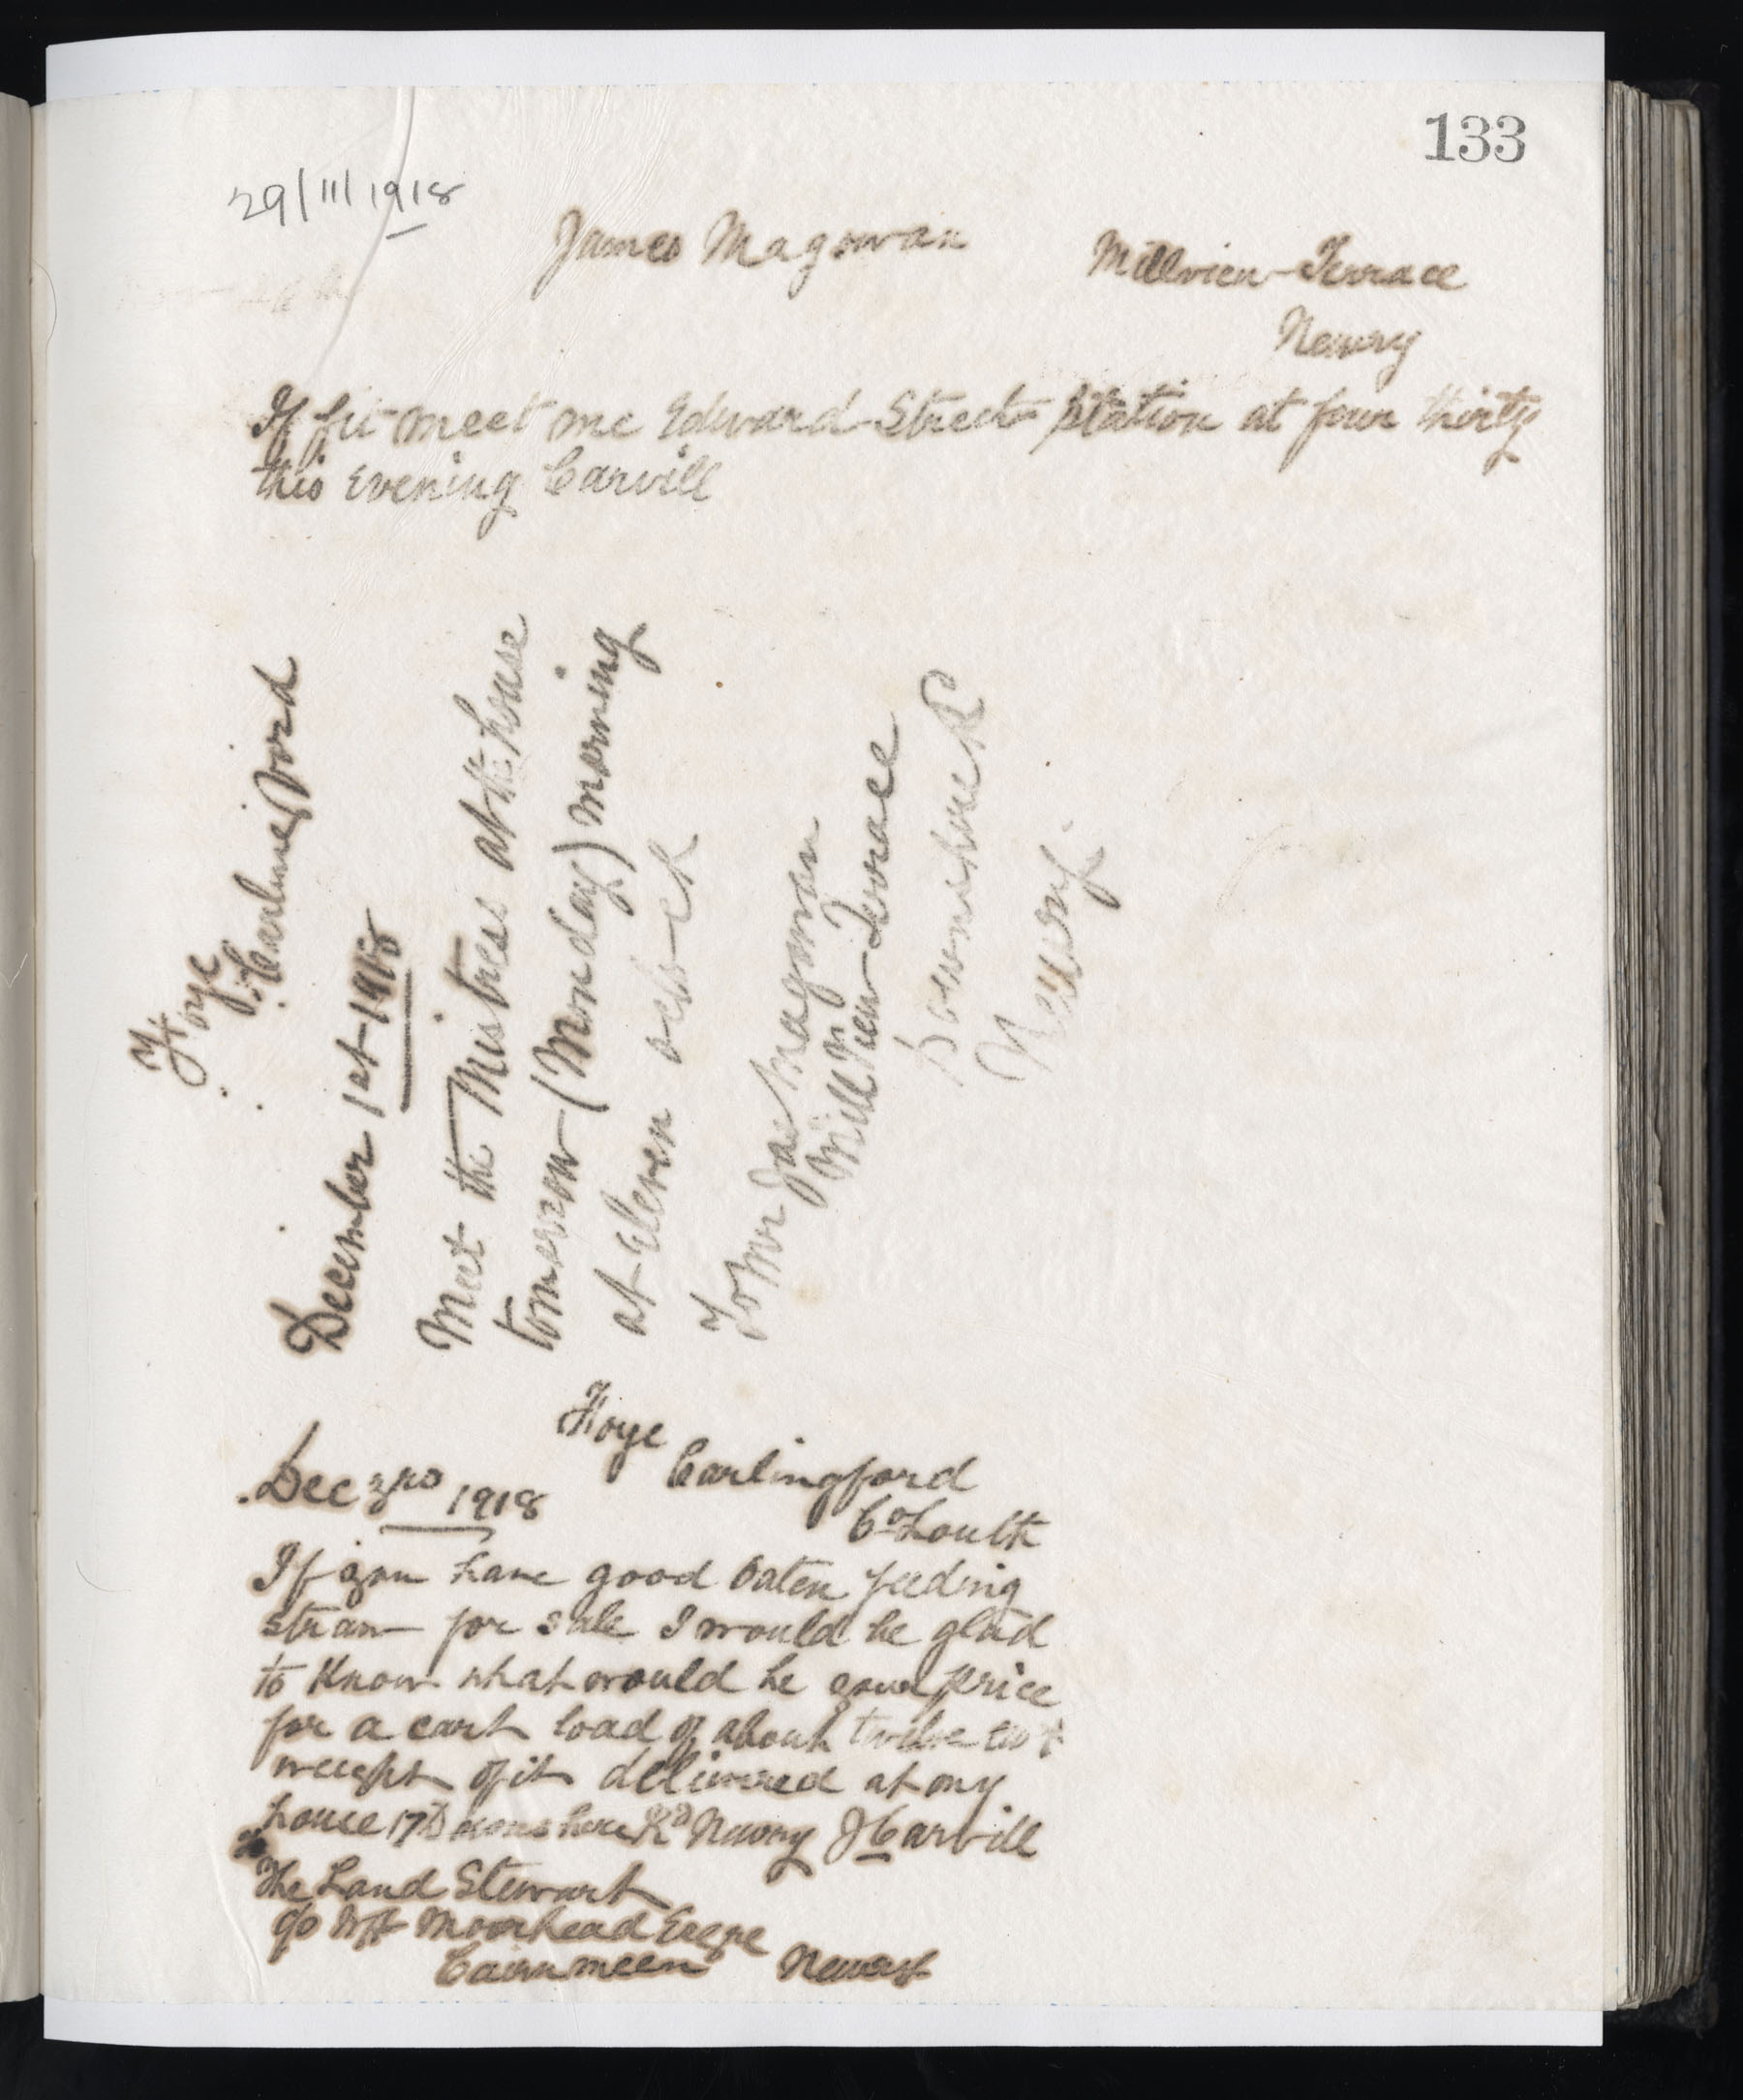 133
29/11/1918
James Magowan
Millview Terrace
Newry
If fit meet me Edward Street Station at four thirty
this Evening Carvill
Foye
Carlingford
December 1st 1918
Meet the Mistress at the house
tomorrow (Monday) morning
at Eleven oclock
To Mr Jas Magowan
Mill View Terrace
Downshire Rd
Newry
Foye
Carlingford
Co Louth
Dec 3rd 1918
If you have good Oaten feeding
straw for sale I would be glad
to Know what would be your price
for a cart load of about twelve cwt
weight of it delivered at my
house 17 Downshire Rd Newry J Carvill
The Land Stewart
c/o Moorhead Esqre
Cairnmeen Newry